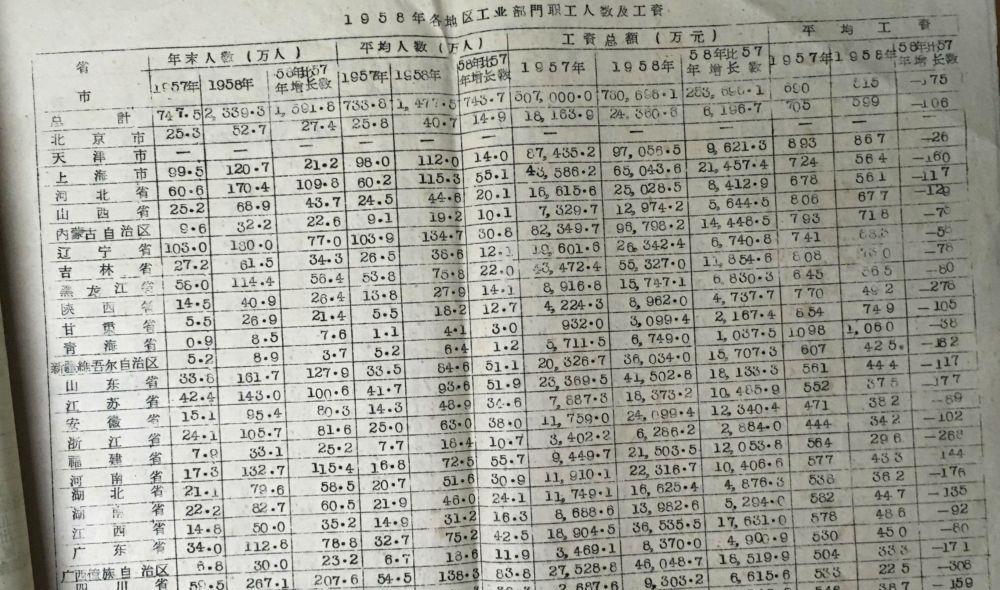 1958年各地区工业部門职工人数及工資
省 市 年末人数(万人) 平均人数(万人) 工資总額(万元) 平均工資
1957年 1958年 58年比57年增长数 1957年 1958年 58年比57年增长数 1957年 1958年 58年比57年增长数 1957年 1958年 58年比57年增长数
总計 747.5 2,339.3 1,591.8 733.8 1,477.5 743.7 507,000.0 760,696.1 253,696.1 690 515 —175
北京市 25.3 52.7 27.4 25.8 40.7 14.9 18,163.9 24,360.6 6,196.7 705 599 —106
天津市 — — — — — — — — — — — —
上海市 99.5 120.7 21.2 98.0 112.0 14.0 87,435.2 97,056.5 9,621.3 893 867 —26
河北省 60.6 170.4 109.8 60.2 115.3 55.1 43,586.2 65,043.6 21,457.4 724 564 —160
山西省 25.2 68.9 43.7 24.5 44.6 20.1 16,615.6 25,028.5 8,412.9 678 561 —117
内蒙古自治区 9.6 32.2 22.6 9.1 19.2 10.1 7,329.7 12,974.2 5,644.5 806 677 —129
辽宁省 103.0 180.0 77.0 103.9 134.7 30.8 82,349.7 96,798.2 14,448.5 793 718 —75
吉林省 27.2 61.5 34.3 26.5 38.6 12.1 19,601.6 26,342.4 6,740.8 741 683 —58
黑龙江省 58.0 114.4 56.4 53.8 75.8 22.0 43,472.4 55,327.0 11,854.6 808 730 —78
陕西省 14.5 40.9 26.4 13.8 27.9 14.1 8,916.8 15,747.1 6,830.3 645 565 —80
甘肃省 5.5 26.9 21.4 5.5 18.2 12.7 4,224.3 8,962.0 4,737.7 770 492 —278
青海省 0.9 8.5 7.6 1.1 4.1 3.0 932.0 3,099.4 2,167.4 854 749 —105
新疆維吾尔自治区 5.2 8.9 3.7 5.2 6.4 1.2 5,711.5 6,749.0 1,037.5 1098 1,060 —38
山东省 33.8 161.7 127.9 33.5 84.6 51.1 20,326.7 36,034.0 15,707.3 607 425 —182
江苏省 42.4 143.0 100.6 41.7 93.6 51.9 23,369.5 41,502.8 18,133.3 561 444 —117
安徽省 15.1 95.4 80.3 14.3 48.9 34.6 7,887.3 18,373.2 10,485.9 552 375 —177
浙江省 24.1 105.7 81.6 25.0 63.0 38.0 11,759.0 24,099.4 12,340.4 471 382 —89
福建省 7.9 33.1 25.2 7.7 18.4 10.7 3,402.2 6,286.2 2,884.0 444 342 —102
河南省 17.3 132.7 115.4 16.8 72.5 55.7 9,449.7 21,503.5 12,053.8 564 296 —268
湖北省 21.1 79.6 58.5 20.7 51.6 30.9 11,910.1 22,316.7 10,406.6 577 433 144
湖南省 22.2 82.7 60.5 21.9 46.0 24.1 11,749.1 16,625.4 4,876.3 538 362 —176
江西省 14.8 50.0 35.2 14.9 31.2 16.3 8,688.6 13,982.6 5,294.0 582 447 —135
广东省 34.0 112.8 78.8 32.7 75.2 42.5 18,904.5 36,535.5 17,631.0 578 486 —92
广西僮族自治区 6.8 30.0 23.2 6.7 18.6 11.9 3,469.1 8,370.0 4,900.9 530 450 —80
四川省 59.5 267.1 207.6 54.5 138.3 83.8 27,528.8 46,048.7 18,519.9 504 333 —171
2,687.6 9,303.2 6,615.6 533 225 —308
387 —159